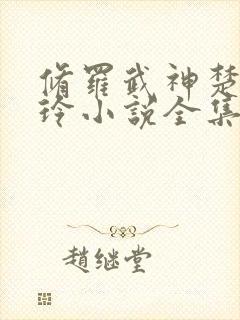 脩罗武神楚
玲小说全集
赵继堂